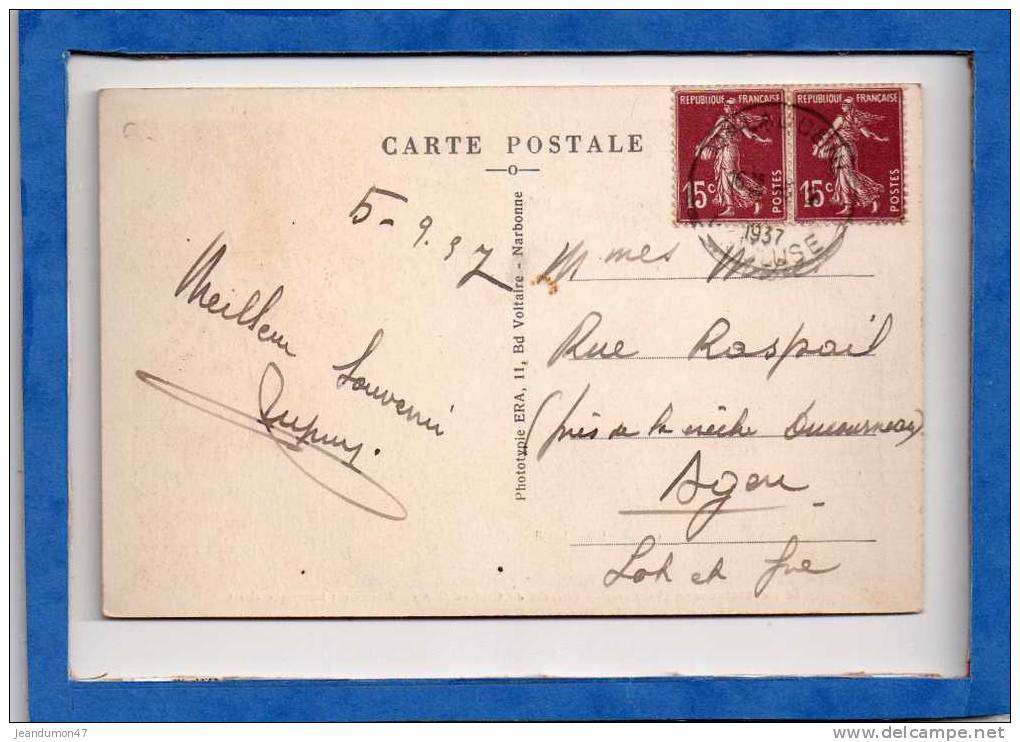 CARTE POSTALE
REPUBLIQUE FRANÇAISE
15c
POSTES
REPUBLIQUE FRANÇAISE
15c
POSTES
1937
MEUSE
5-9.37
Meilleur
Souvenir
Dupuy.
Phototypie ERA, 11, Bd Voltaire - Narbonne
Mmes
Rue Raspail
(près de la crèche Ducourneau)
Agen
Lot et Gne
jeandumon47
delcampe.net